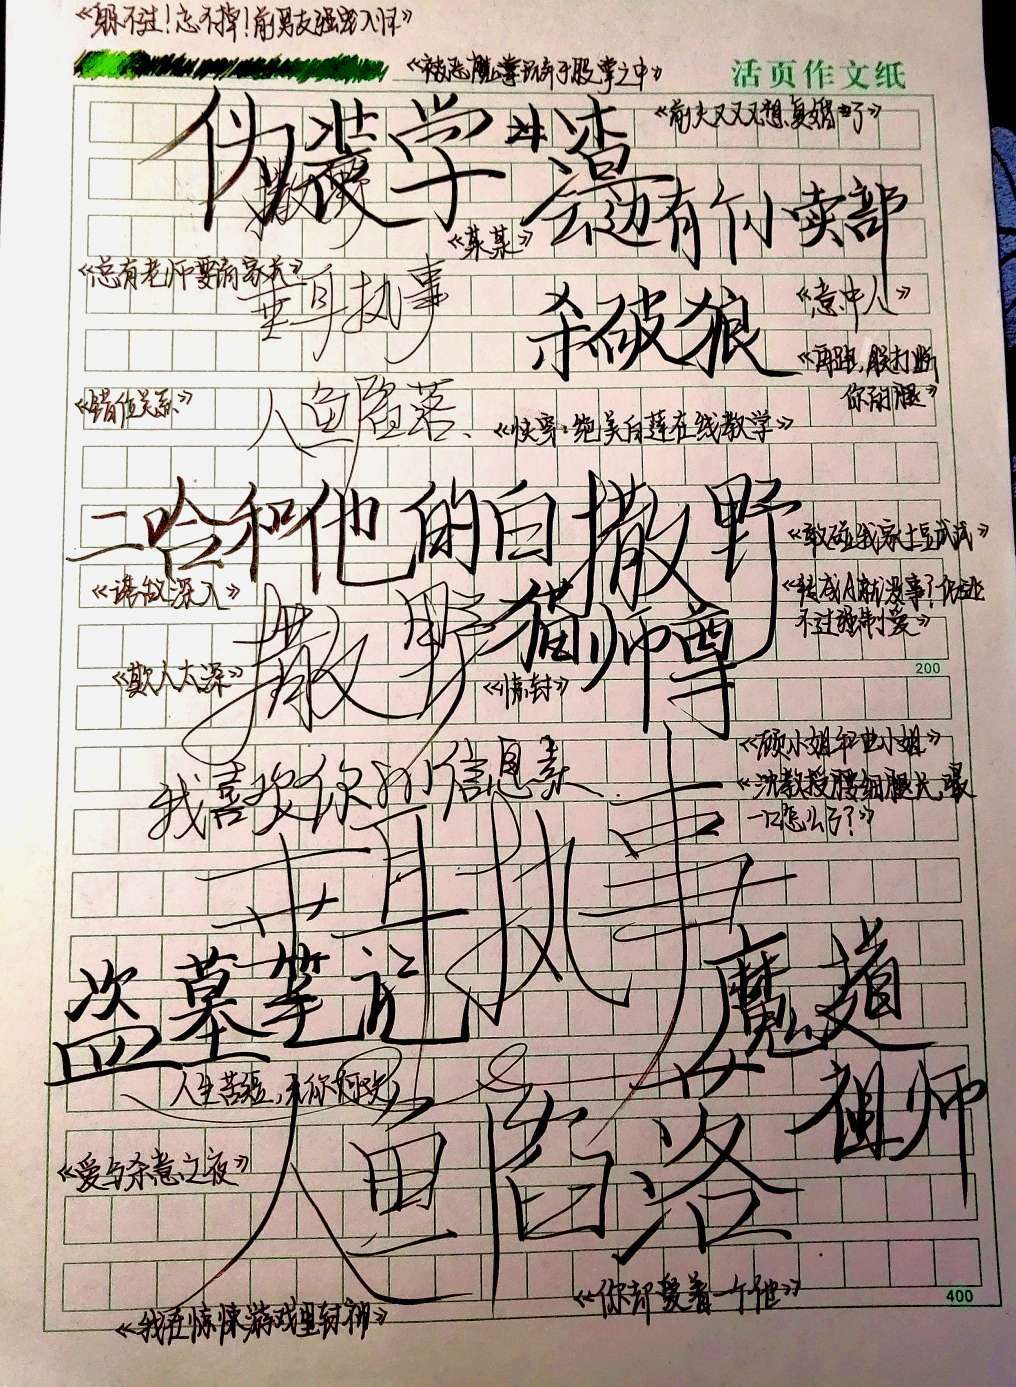 《躲不过！忘不掉！前男友强宠入怀》
《被恶魔掌玩弄于股掌之中》
活页作文纸
伪装学渣
《前夫又又又想复婚了》
撒野
云边有个小卖部
《某某》
《总有老师要请家长》
芸耳执事
杀破狼
《意中人》
《再跑，腿打断
你的腿》
《错位关系》
人鱼陷落
《快穿：绝美白莲在线教学》
二哈和他的白
撒野
《敢碰我家土豆试试》
《诱敌深入》
撒野
猫师尊
《转成A就没事了？你逃
不过强制爱》
200
《欺人太深》
《情封》
我喜欢你的信息素
《顾小姐和曲小姐》
《沈教授腰细腿长，最
一口怎么了？》
芸耳执事
盗墓笔记
魔道
祖师
人生苦短，无你何欢
人鱼陷落
《爱与杀意之夜》
《你却爱着一个他》
400
《我在惊悚游戏里封神》